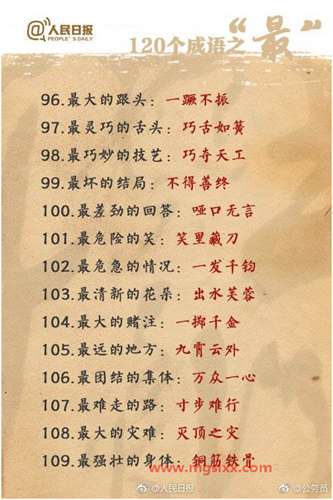 @人民日报
PEOPLE'S DAILY
120个成语之“最”
96.最大的跟头：一蹶不振
97.最灵巧的舌头：巧舌如簧
98.最巧妙的技艺：巧夺天工
99.最坏的结局：不得善终
100.最差劲的回答：哑口无言
101.最危险的笑：笑里藏刀
102.最危急的情况：一发千钧
103.最清新的花朵：出水芙蓉
104.最大的赌注：一掷千金
105.最远的地方：九霄云外
106.最团结的集体：万众一心
107.最难走的路：寸步难行
108.最大的灾难：灭顶之灾
109.最强壮的身体：铜筋铁骨
www.mgslxx.com
@人民日报
@公务员